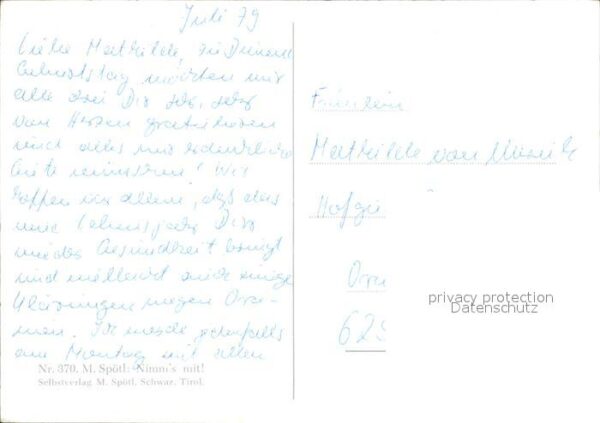 Juli 79
Liebe Mathilde, zu Deinem
Geburtstag möchten wir
alle drei Dir sehr, sehr
von Herzen gratulieren
und alles nur erdenkliche
Gute wünschen! Wir
hoffen vor allem, daß das
neue Lebensjahr Dir
wieder Gesundheit bringt
und vielleicht auch einige
wegen
Ich werde jedenfalls
am Montag mit allen
Nr. 370. M. Spötl: Nimm's mit!
Selbstverlag M. Spötl, Schwaz, Tirol.
Fräulein
Mathilde von
Hofgu
Oran
625
privacy protection
Datenschutz